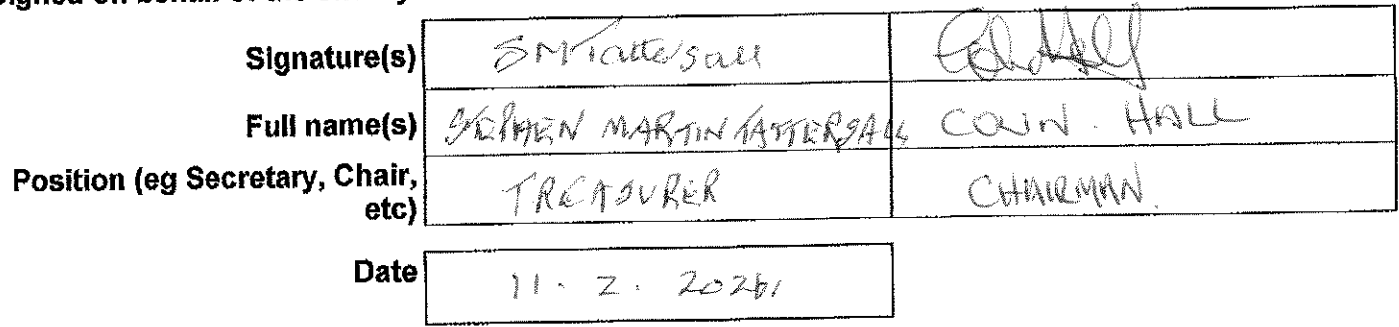 Signature(s) SMTattersall
Full name(s) STEPHEN MARTIN TATTERSALL COLIN. HALL
Position (eg Secretary, Chair, TREASURER CHAIRMAN.
etc)
Date 11. 2.